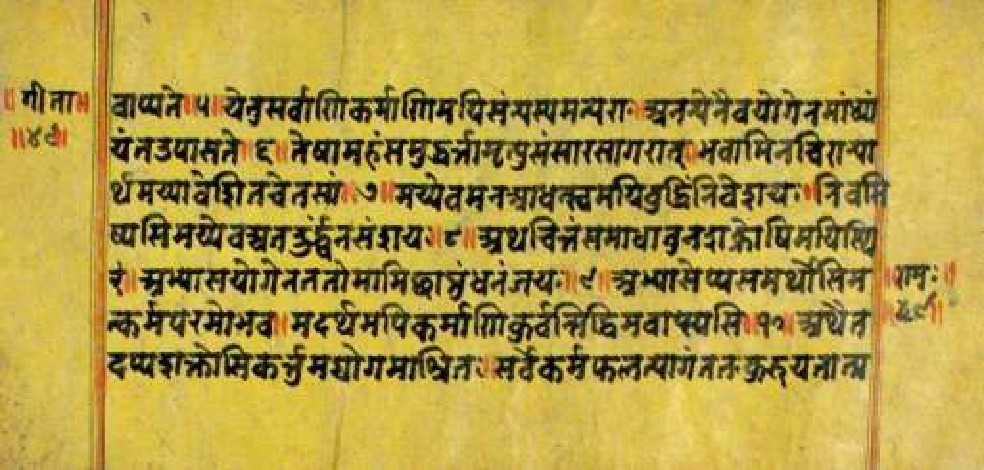 ॥गीता॥
॥४९॥
वाप्यते ॥५॥ येतुसर्वाणिकर्माणिमयिसंन्यस्यमत्पराः॥ अनन्येनैवयोगेनमांध्या
यंतउपासते ॥६॥ तेषामहंसमुद्धर्त्तामृत्युसंसारसागरात्॥ भवामिनचिरात्पा
र्थमय्यावेशितचेतसां ॥७॥ मय्येवमनआधत्स्वमयिबुद्धिंनिवेशय॥ निवसि
ष्यसिमय्येवअतऊर्द्ध्वंनसंशयः ॥८॥ अथचित्तंसमाधातुंनशक्नोषिमयिस्थि
रं॥ अभ्यासयोगेनततोमामिच्छाप्तुंधनंजय ॥९॥ अभ्यासेप्यसमर्थोसिम
त्कर्मपरमोभव॥ मदर्थमपिकर्माणिकुर्वन्सिद्धिमवाप्स्यसि ॥१०॥ अथैत
दप्यशक्तोसिकर्त्तुंमद्योगमाश्रितः॥ सर्वकर्मफलत्यागंततःकुरुयतात्म
रामः॥